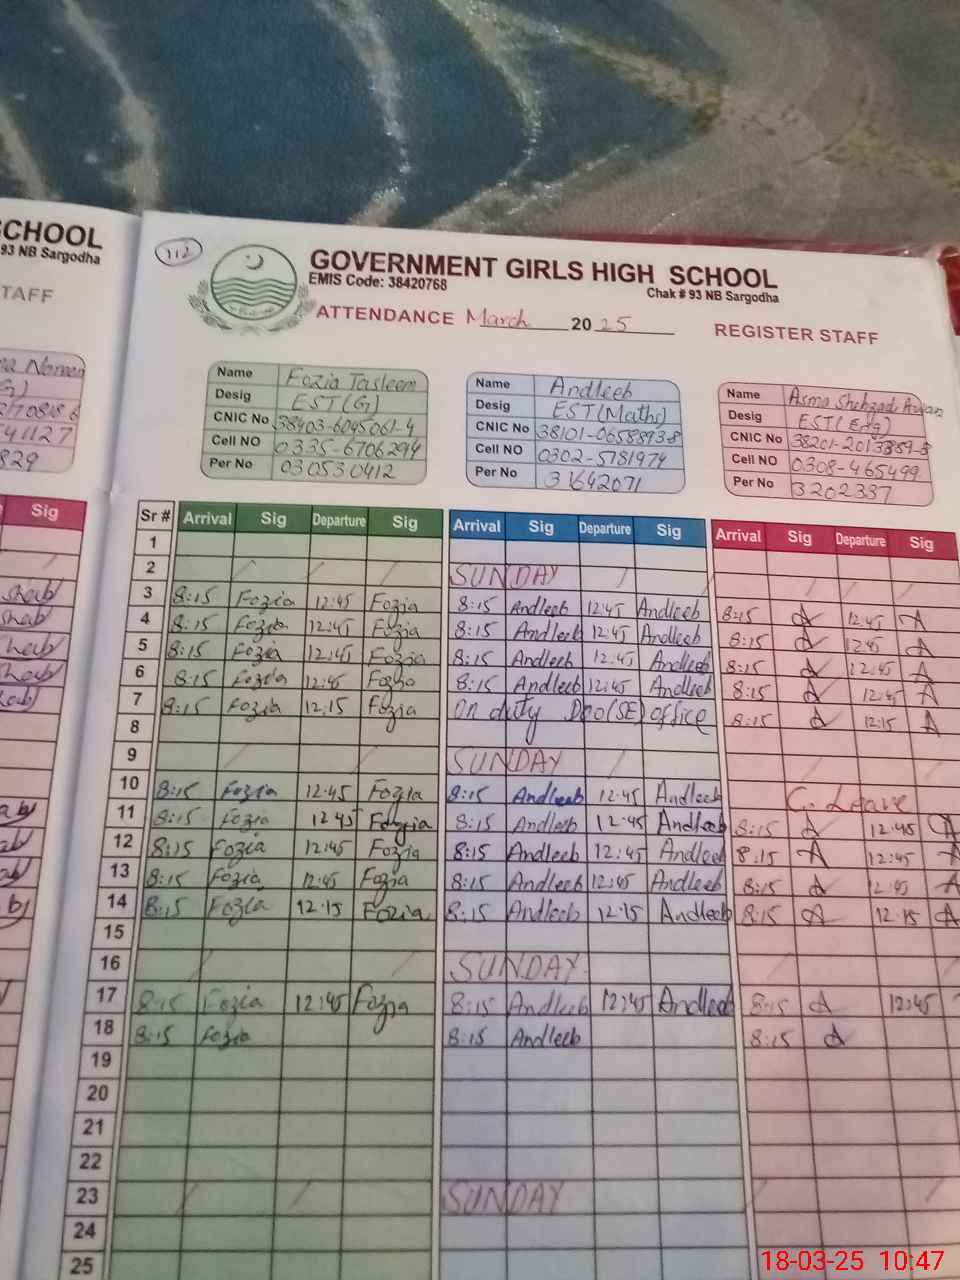 SCHOOL
93 NB Sargodha
TAFF
Sig
112
GOVERNMENT GIRLS HIGH SCHOOL
EMIS Code: 38420768
Chak # 93 NB Sargodha
ATTENDANCE March 20 25 REGISTER STAFF
Name Fozia Tasleem
Desig EST(G)
CNIC No 38403-6045061-4
Cell NO 0335-6706294
Per No 030530412
Name Andleeb
Desig EST(Maths)
CNIC No 38101-0658893-8
Cell NO 0302-5781974
Per No 31642071
Name Asma Shehzadi Awan
Desig EST(Eng)
CNIC No
Cell NO 0308-465499
Per No 3202337
Sr # Arrival Sig Departure Sig Arrival Sig Departure Sig Arrival Sig Departure Sig
1
2 SUNDAY
3 8:15 Fozia 12:45 Fozia 8:15 Andleeb 12:45 Andleeb 8:15 A 12:45 A
4 8:15 Fozia 12:45 Fozia 8:15 Andleeb 12:45 Andleeb 8:15 A 12:45 A
5 8:15 Fozia 12:45 Fozia 8:15 Andleeb 12:45 Andleeb 8:15 A 12:45 A
6 8:15 Fozia 12:45 Fozia 8:15 Andleeb 12:45 Andleeb 8:15 A 12:45 A
7 8:15 Fozia 12:15 Fozia On duty Deo(SE) office 8:15 A 12:15 A
8
9 SUNDAY
10 8:15 Fozia 12:45 Fozia 8:15 Andleeb 12:45 Andleeb C. Leave
11 8:15 Fozia 12 45 Fozia 8:15 Andleeb 12:45 Andleeb 8:15 A 12:45 A
12 8:15 Fozia 12:45 Fozia 8:15 Andleeb 12:45 Andleeb 8:15 A 12:45 A
13 8:15 Fozia 12:45 Fozia 8:15 Andleeb 12:45 Andleeb 8:15 A 12:45 A
14 8:15 Fozia 12:15 Fozia 8:15 Andleeb 12:15 Andleeb 8:15 A 12:15 A
15
16 SUNDAY
17 8:15 Fozia 12:45 Fozia 8:15 Andleeb 12:45 Andleeb 8:15 A 12:45
18 8:15 Fozia 8:15 Andleeb 8:15 A
19
20
21
22
23 SUNDAY
24
25
18-03-25 10:47